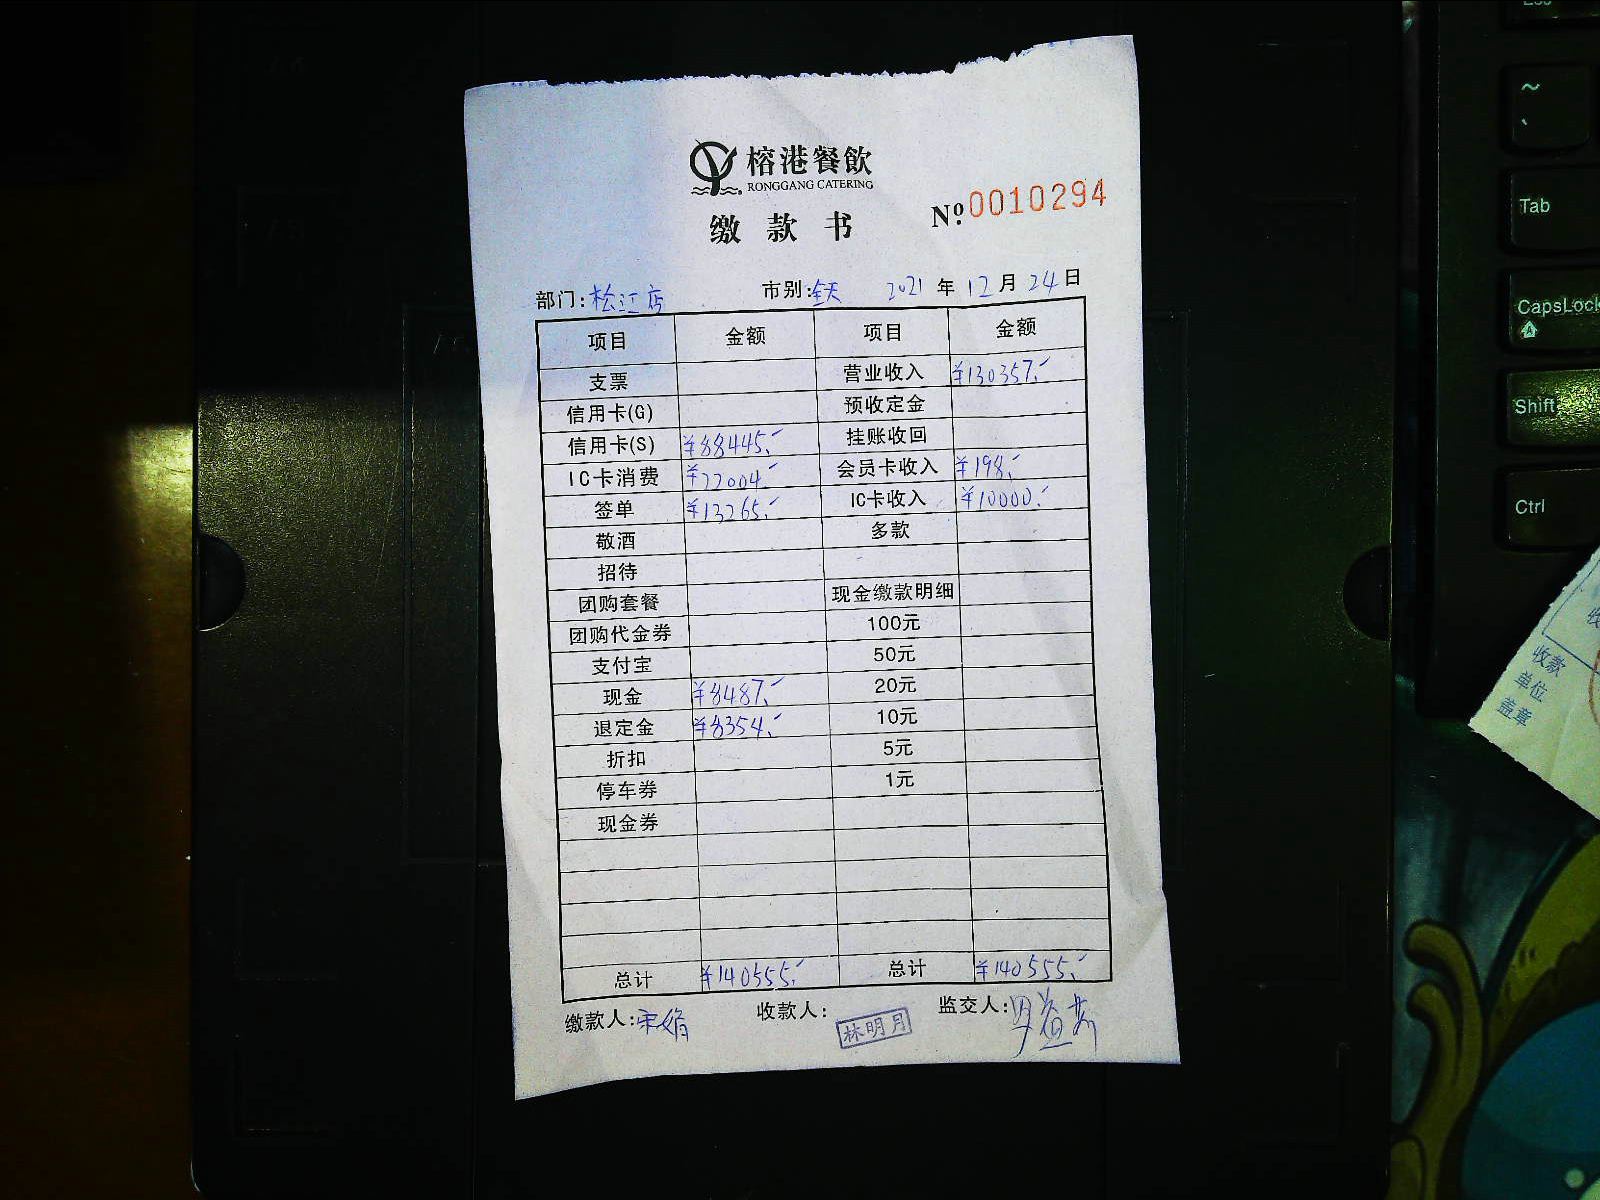 榕港餐飲
RONGGANG CATERING
缴款书
Nº 0010294
部门:松江店 市别:全天 2021年12月24日
项目 金额 项目 金额
支票 营业收入 ¥130357.-
信用卡(G) 预收定金
信用卡(S) ¥88445.- 挂账收回
IC卡消费 ¥22004.- 会员卡收入 ¥198.-
签单 ¥13265.- IC卡收入 ¥10000.-
敬酒 多款
招待
团购套餐 现金缴款明细
团购代金券 100元
支付宝 50元
现金 ¥8487.- 20元
退定金 ¥8354.- 10元
折扣 5元
停车券 1元
现金券
总计 ¥140555.- 总计 ¥140555.-
缴款人: 收款人:林明月 监交人:
~
Tab
CapsLock
Shift
Ctrl
收款
单位
盖章